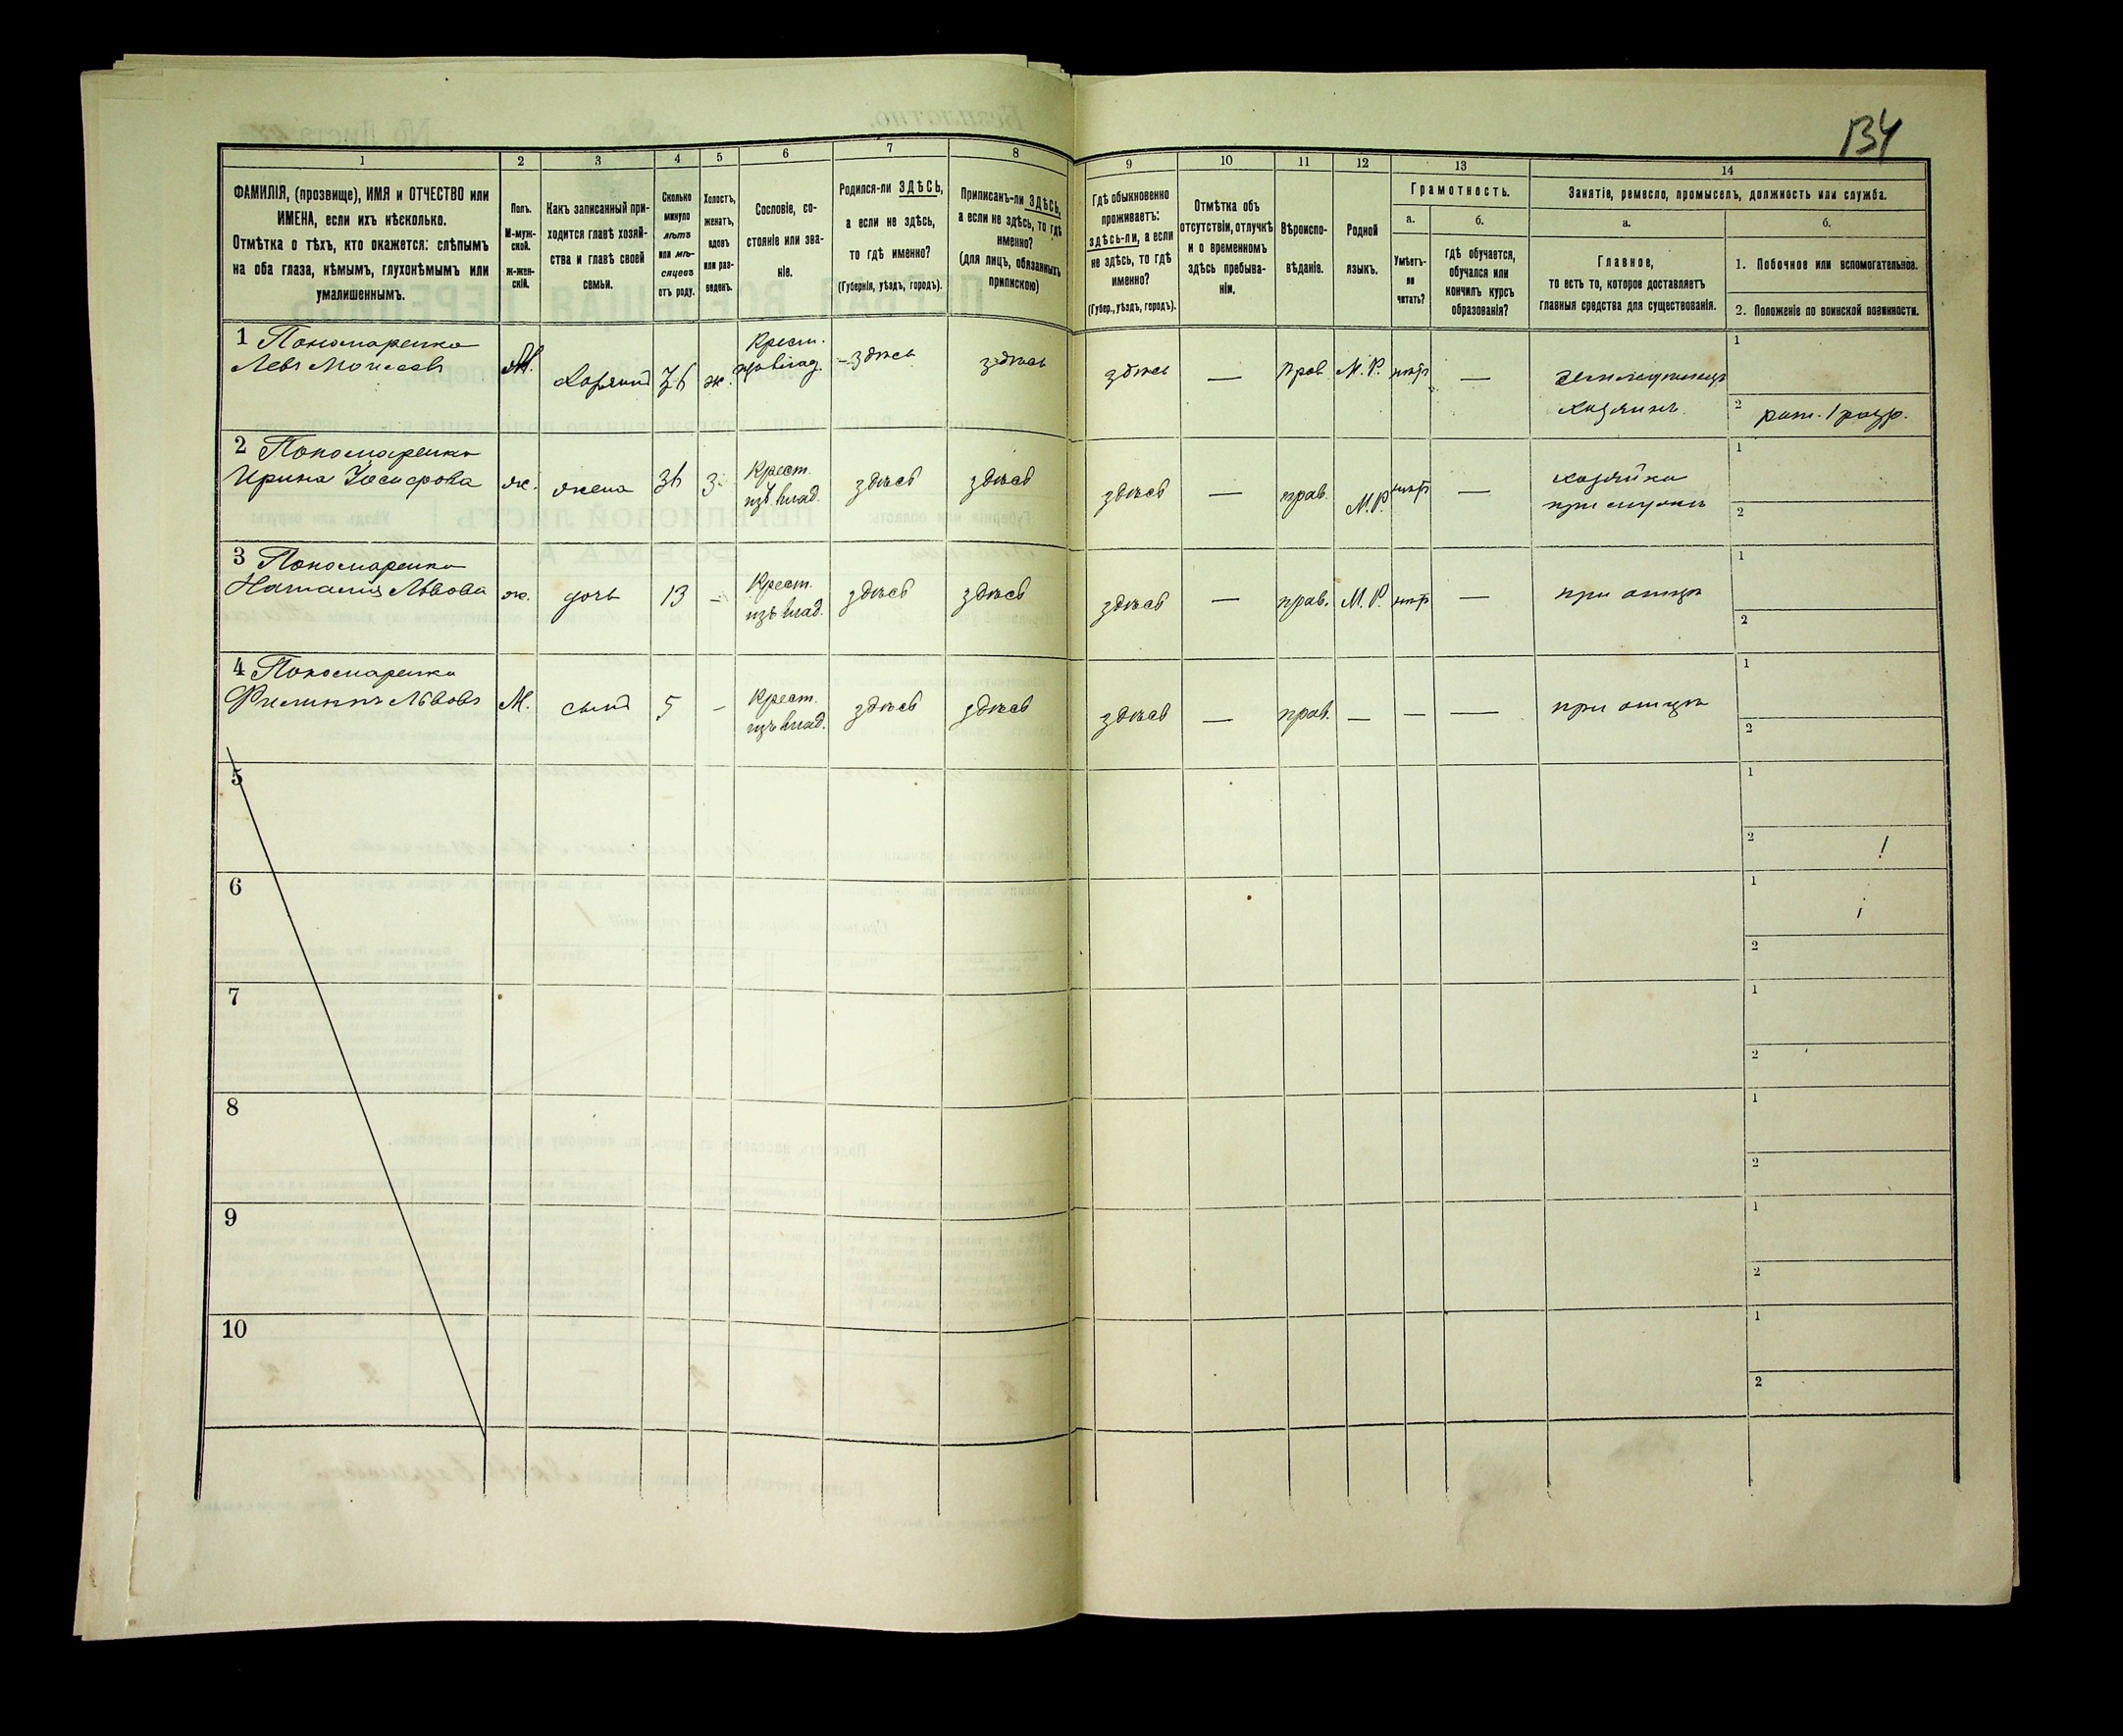 134
1 2 3 4 5 6 7 8 9 10 11 12 13 14
ФАМИЛІЯ, (прозвище), ИМЯ и ОТЧЕСТВО или
ИМЕНА, если ихъ нѣсколько.
Отмѣтка о тѣхъ, кто окажется: слѣпымъ
на оба глаза, нѣмымъ, глухонѣмымъ или
умалишеннымъ.
Полъ.
М-муж-
ской.
ж-жен-
скій.
Какъ записанный при-
ходится главѣ хозяй-
ства и главѣ своей
семьи.
Сколько
минуло
лѣтъ
или мѣ-
сяцевъ
отъ роду.
Холостъ,
женатъ,
вдовъ
или раз-
веденъ.
Сословіе, со-
стояніе или зва-
ніе.
Родился-ли ЗДѢСЬ,
а если не здѣсь,
то гдѣ именно?
(Губернія, уѣздъ, городъ).
Приписанъ-ли ЗДѢСЬ,
а если не здѣсь, то гдѣ
именно?
(для лицъ, обязанныхъ
припискою)
Гдѣ обыкновенно
проживаетъ:
здѣсь-ли, а если
не здѣсь, то гдѣ
именно?
(Губер., уѣздъ, городъ).
Отмѣтка объ
отсутствіи, отлучкѣ
и о временномъ
здѣсь пребыва-
ніи.
Вѣроиспо-
вѣданіе.
Родной
языкъ.
Грамотность.
а.
Умѣетъ-
ли
читать?
б.
гдѣ обучается,
обучался или
кончилъ курсъ
образованія?
Занятіе, ремесло, промыселъ, должность или служба.
а.
Главное,
то есть то, которое доставляетъ
главныя средства для существованія.
б.
1. Побочное или вспомогательное.
2. Положеніе по воинской повинности.
1 Пономаренко
Левъ Моисеевъ
М. хозяинъ 36 ж. Крест.
изъ влад. здѣсь здѣсь здѣсь — Прав. М. Р. нѣтъ — Земледѣлецъ
хозяинъ
1
2 рат. 1 разр.
2 Пономаренко
Ирина
ж. жена 36 З. Крест.
изъ влад. здѣсь здѣсь здѣсь — прав. М. Р. нѣтъ — хозяйка
при мужѣ
1
2
3 Пономаренко
Наталия Львова
ж. дочь 13 — Крест.
изъ влад. здѣсь здѣсь здѣсь — прав. М. Р. нѣтъ — при отцѣ
1
2
4 Пономаренко
Филиппъ Львовъ
М. сынъ 5 — Крест.
изъ влад. здѣсь здѣсь здѣсь — прав. — — — при отцѣ
1
2
5
1
2
6
1
2
7
1
2
8
1
2
9
1
2
10
1
2